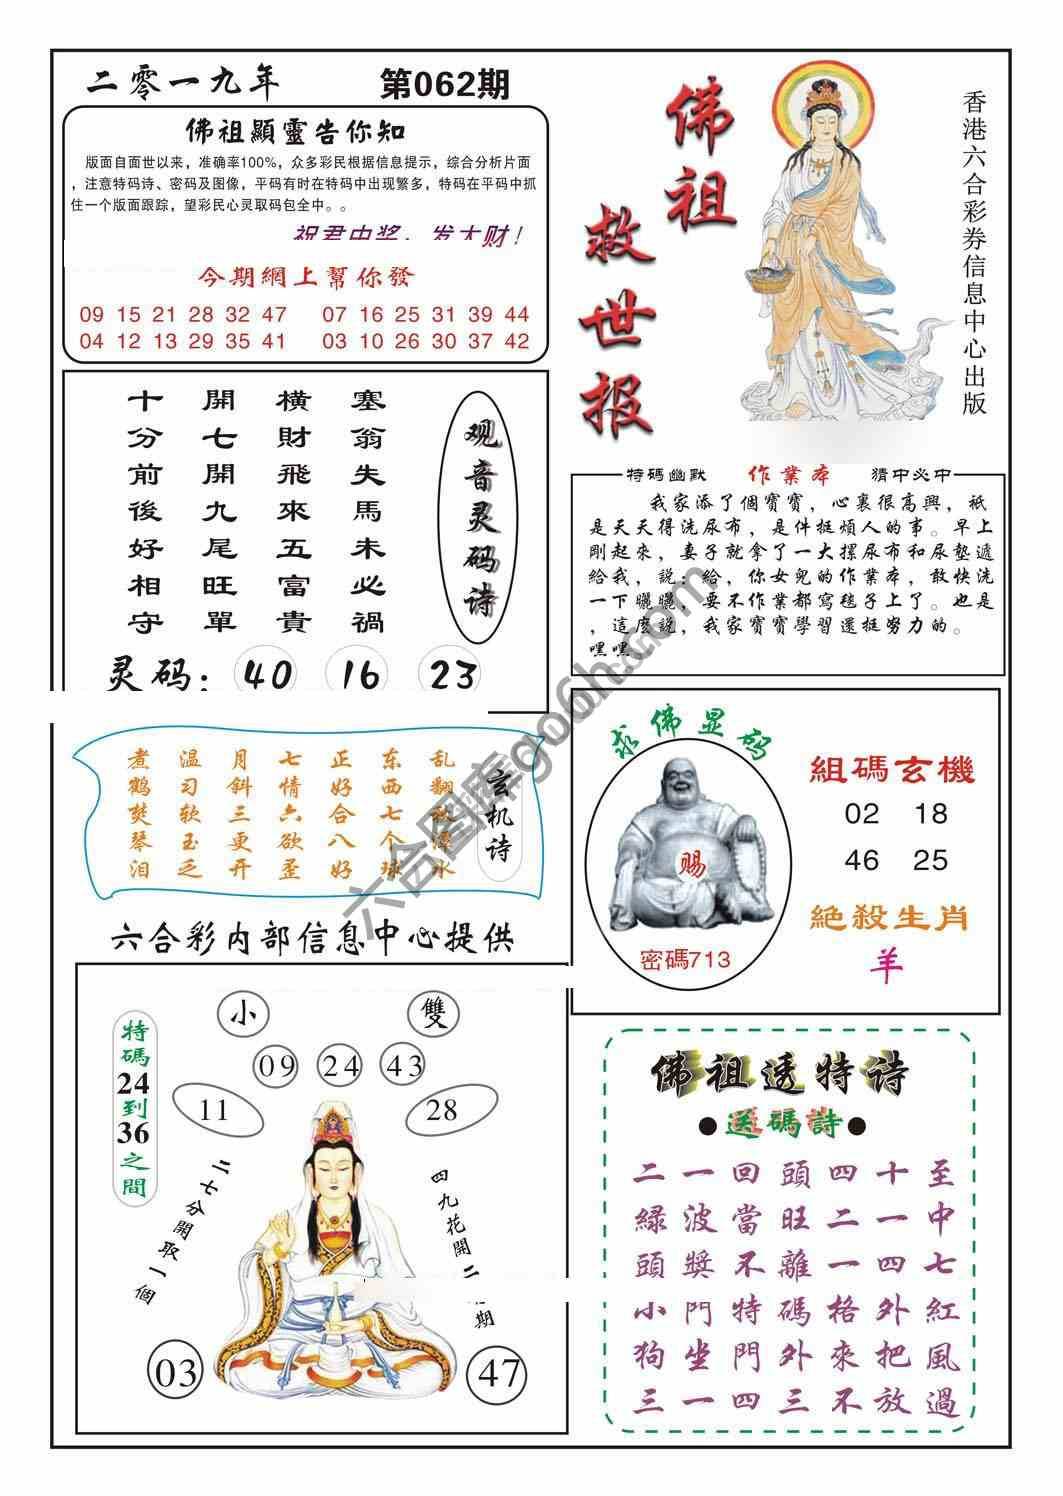 二零一九年 第062期
佛祖顯靈告你知
版面自面世以来，准确率100%，众多彩民根据信息提示，综合分析片面
，注意特码诗、密码及图像，平码有时在特码中出现繁多，特码在平码中抓
住一个版面跟踪，望彩民心灵取码包全中。。
祝君中奖，发大财！
今期網上幫你發
09 15 21 28 32 47 07 16 25 31 39 44
04 12 13 29 35 41 03 10 26 30 37 42
佛祖
救世报
香港六合彩券信息中心出版
观音灵码诗
塞翁失馬未必禍
橫財飛來五富貴
開七開九尾旺單
十分前後好相守
灵码：40 16 23
特碼幽默 作業本 猜中必中
我家添了個寶寶，心裏很高興，祇
是天天得洗尿布，是件挺煩人的事。早上
剛起來，妻子就拿了一大摞尿布和尿墊遞
給我，説：給，你女兒的作業本，敢快洗
一下曬曬，要不作業都寫毯子上了。也是
，這麼説，我家寶寶學習還挺努力的。
嘿嘿。
玄机诗
乱翻秋潭水
东西七个球
正好合八好
七情六欲歪
月斜三更开
温习软玉乏
煮鹤焚琴泪
求佛显码
赐
密碼713
組碼玄機
02 18
46 25
絕殺生肖
羊
六合彩内部信息中心提供
特碼24到36之間
小 雙
09 24 43
11 28
二七分開取一個
四九花開二期
03 47
佛祖透特诗
●送碼詩●
二一回頭四十至
緑波當旺二一中
頭獎不離一四七
小門特碼格外紅
狗坐門外來把風
三一四三不放過
六合图库go6h.com